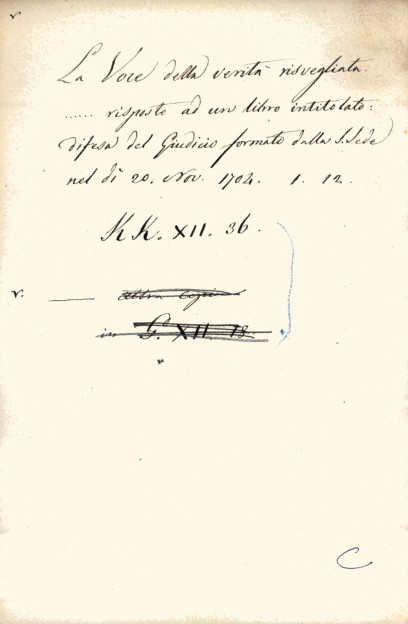 v
La Voce della verità risvegliata.
...... risposte ad un libro intitolato:
difesa del Giudicio formato dalla S. Sede
nel dì 20. Nov. 1704. 1. 12.
KK. XII. 36.
v. — altra copia
in G. XII. 18.
"
C